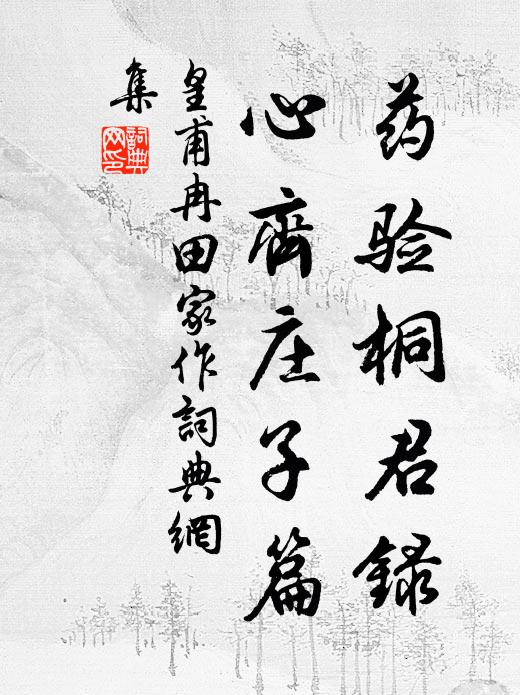 药验桐君録
心齊庄子篇
皇甫冉田家作詞典網
集
詞典
网印